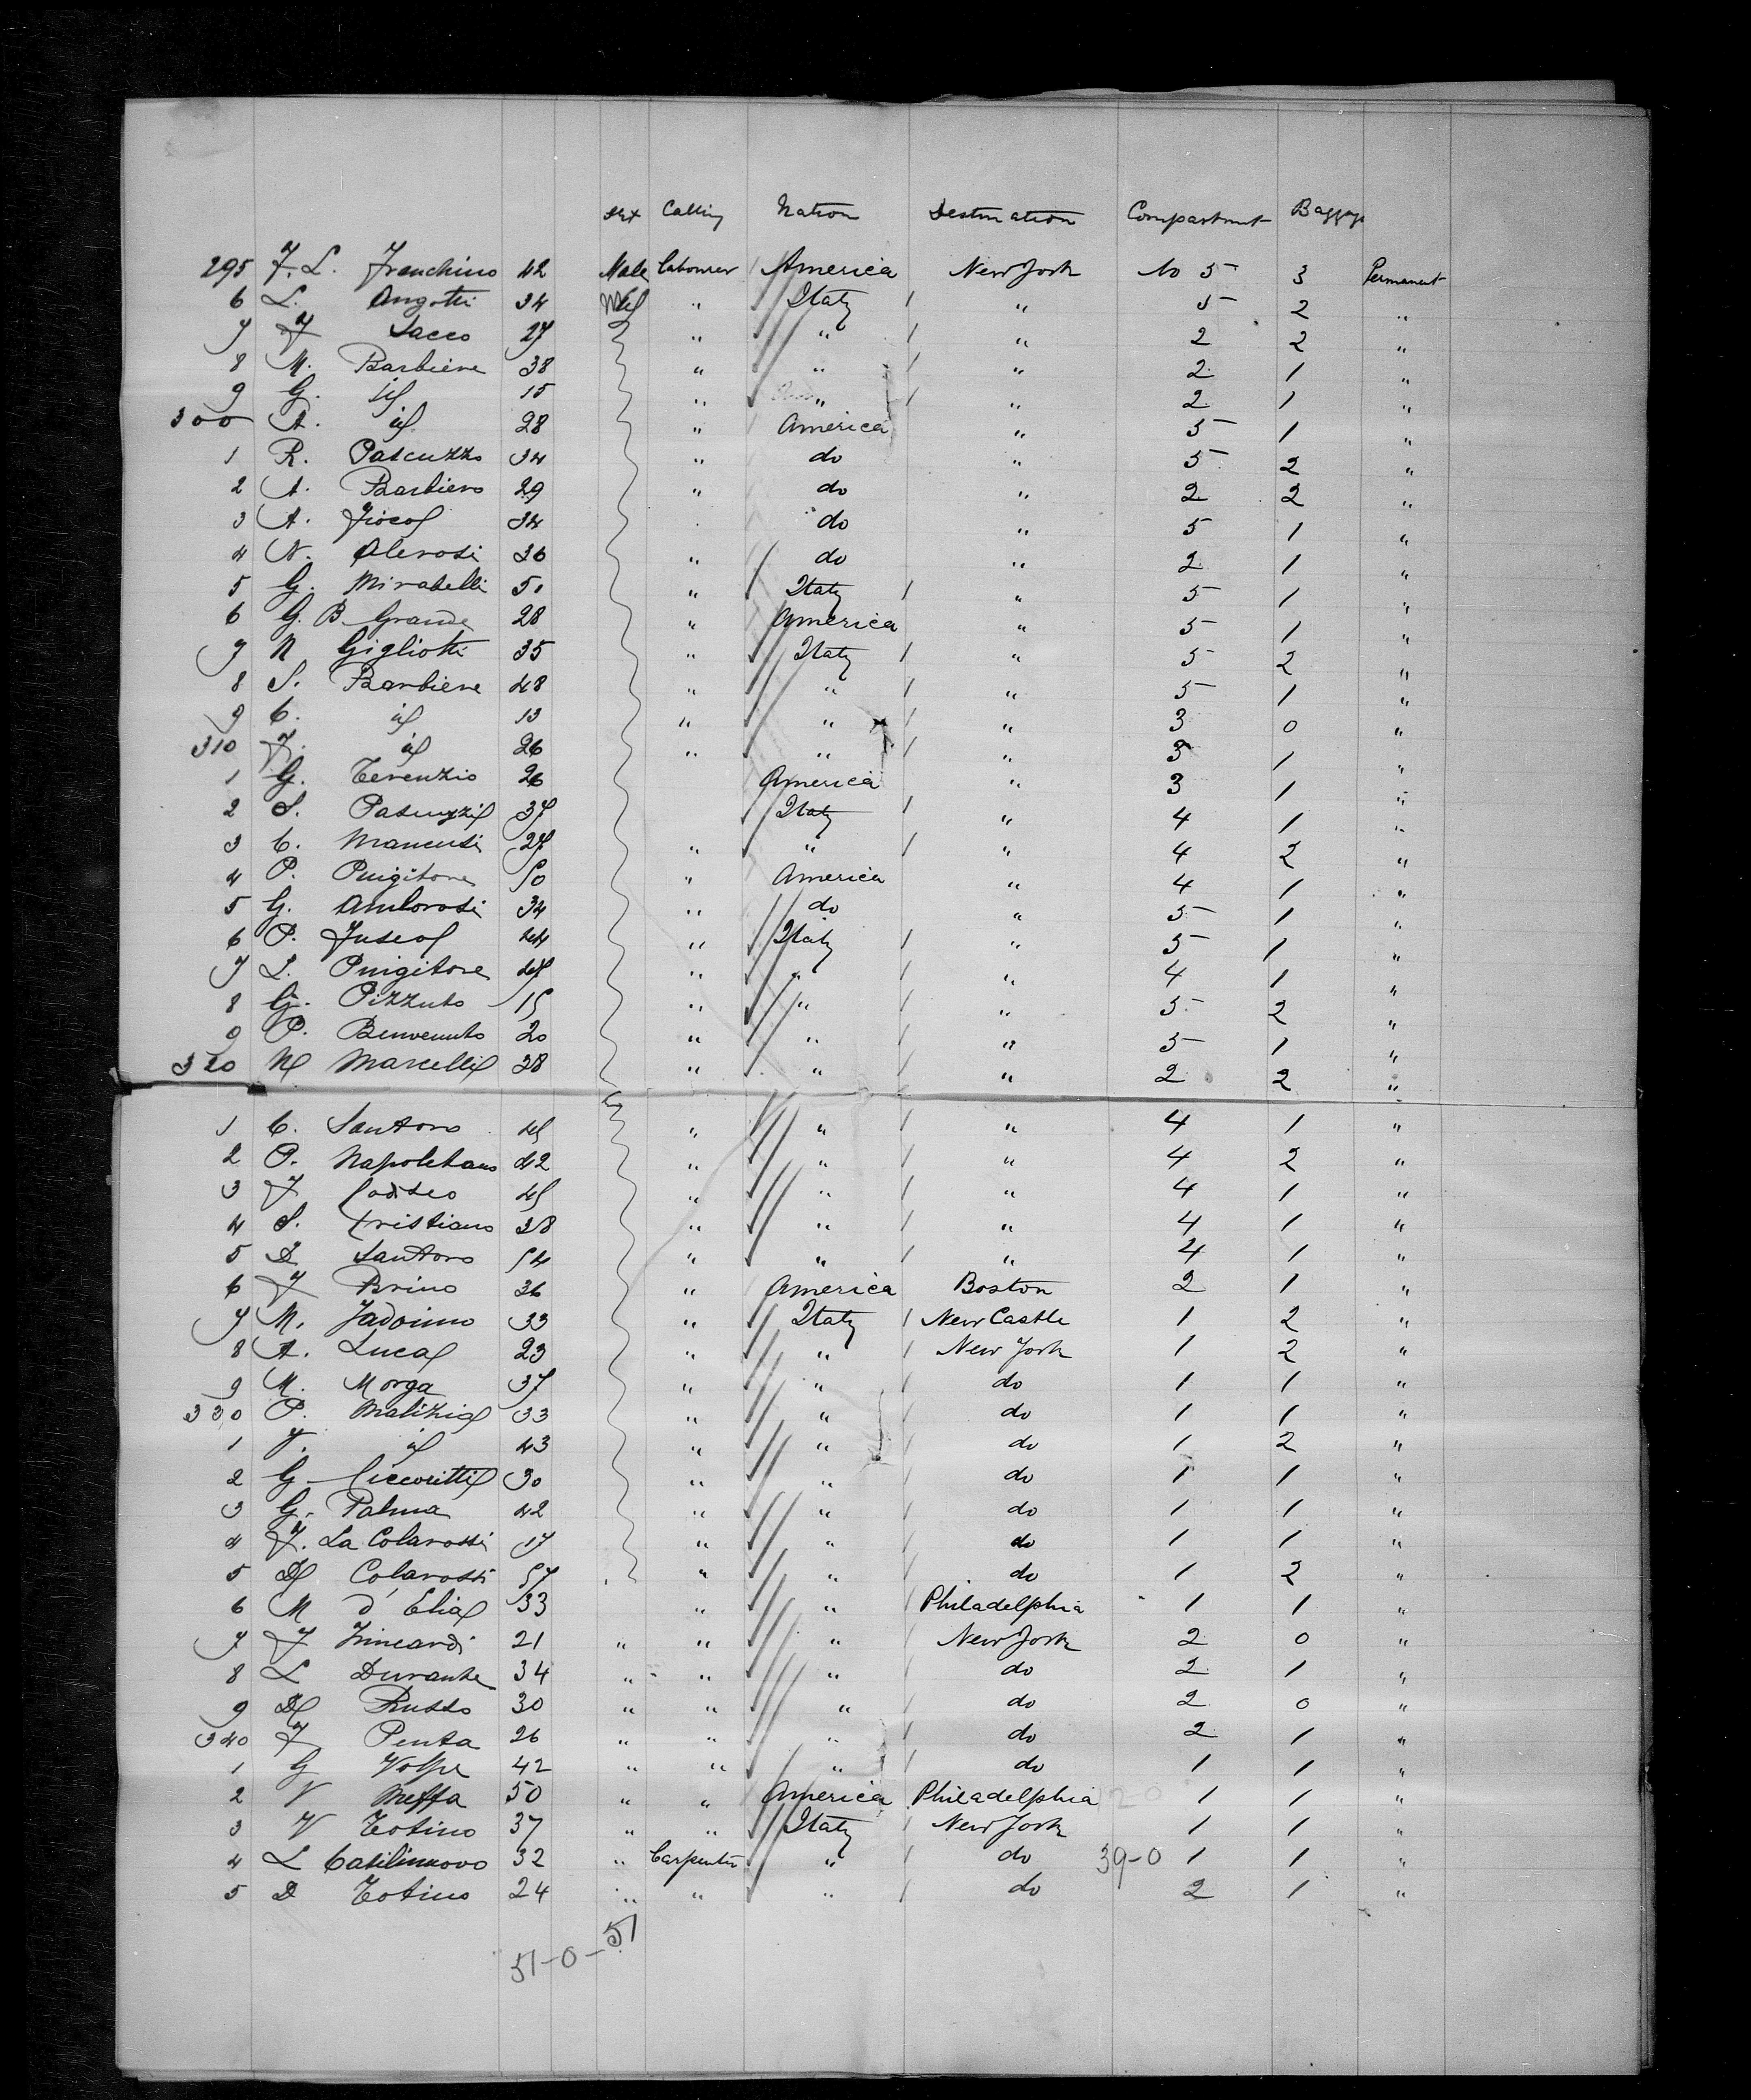 Sex Calling Nation Destination Compartment Baggage
295 F. L. Franchino 42 Male Labourer America New York No 5 3 Permanent
6 L. Angotti 34 " Italy " 5 2 "
7 F Sacco 27 " " " 2 2 "
8 M. Barbiere 38 " " " 2 1 "
9 G. id 15 " " " 2 1 "
300 A. id 28 " America " 5 1 "
1 R. Pascuzzo 34 " do " 5 2 "
2 A. Barbiero 29 " do " 2 2 "
3 A. 34 do " 5 1 "
4 N. 36 " do " 2 1 "
5 G. Mirabelli 50 " Italy " 5 1 "
6 G. B Grande 28 " America " 5 1 "
7 N Gigliotti 35 " Italy " 5 2 "
8 S. Barbiere 48 " " " 5 1 "
9 C. id 13 " " " 3 0 "
310 F. id 26 " " " 3 1 "
1 G. Terenzio 26 America " 3 1 "
2 S. 37 Italy " 4 1 "
3 C. Mancusi 27 " " " 4 2 "
4 P. Puigitore 50 " America " 4 1 "
5 G. Ambrosi 34 " do " 5 1 "
6 P. 44 " Italy " 5 1 "
7 L. Puigitore 47 " " " 4 1 "
8 G. Pizzuto 15 " " " 5 2 "
9 P. Benvenuto 20 " " " 5 1 "
320 N Marcelli 38 " " " 2 2 "
1 C. Santoro 45 " " " 4 1 "
2 P. Napoletano 42 " " " 4 2 "
3 F 45 " " " 4 1 "
4 S. Cristiano 38 " " " 4 1 "
5 D Santoro 54 " " " 4 1 "
6 F Brino 36 " America Boston 2 1 "
7 M. Iadoinno 33 " Italy New Castle 1 2 "
8 A. Luca 23 " " New York 1 2 "
9 M. Morga 37 " " do 1 1 "
330 P. Malizia 33 " " do 1 1 "
1 V. id 43 " " do 1 2 "
2 G Ciccoritti 30 " " do 1 1 "
3 G. Palma 42 " " do 1 1 "
4 F. La Colarossi 17 " " do 1 1 "
5 D Colarossi 57 " " do 1 2 "
6 M d'Elia 33 " " Philadelphia 1 1 "
7 F 21 " " " New York 2 0 "
8 L Durante 34 " " " do 2 1 "
9 D Russo 30 " " " do 2 0 "
340 F Penta 26 " " " do 2 1 "
1 G Volpe 42 " " " do 1 1 "
2 V Meffa 50 " " America Philadelphia 20 1 1 "
3 V Totino 37 " " Italy New York 1 1 "
4 L 32 " Carpenter " do 39-0 1 1 "
5 D Totino 24 " " " do 2 1 "
51-0-51